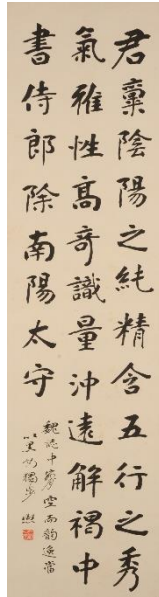 君稟陰陽之純精含五行之秀
氣雅性高奇識量沖遠解褐中
書侍郎除南陽太守
魏志中摩空而韻逸當
以